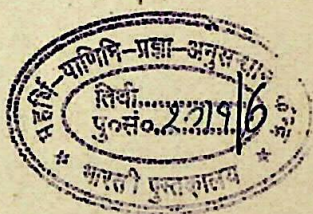 महर्षि-पाणिनि-प्रज्ञा-अनुसन्धान
तिथी..........
पु०सं०..2719/6
* भारती पुस्तकालय *